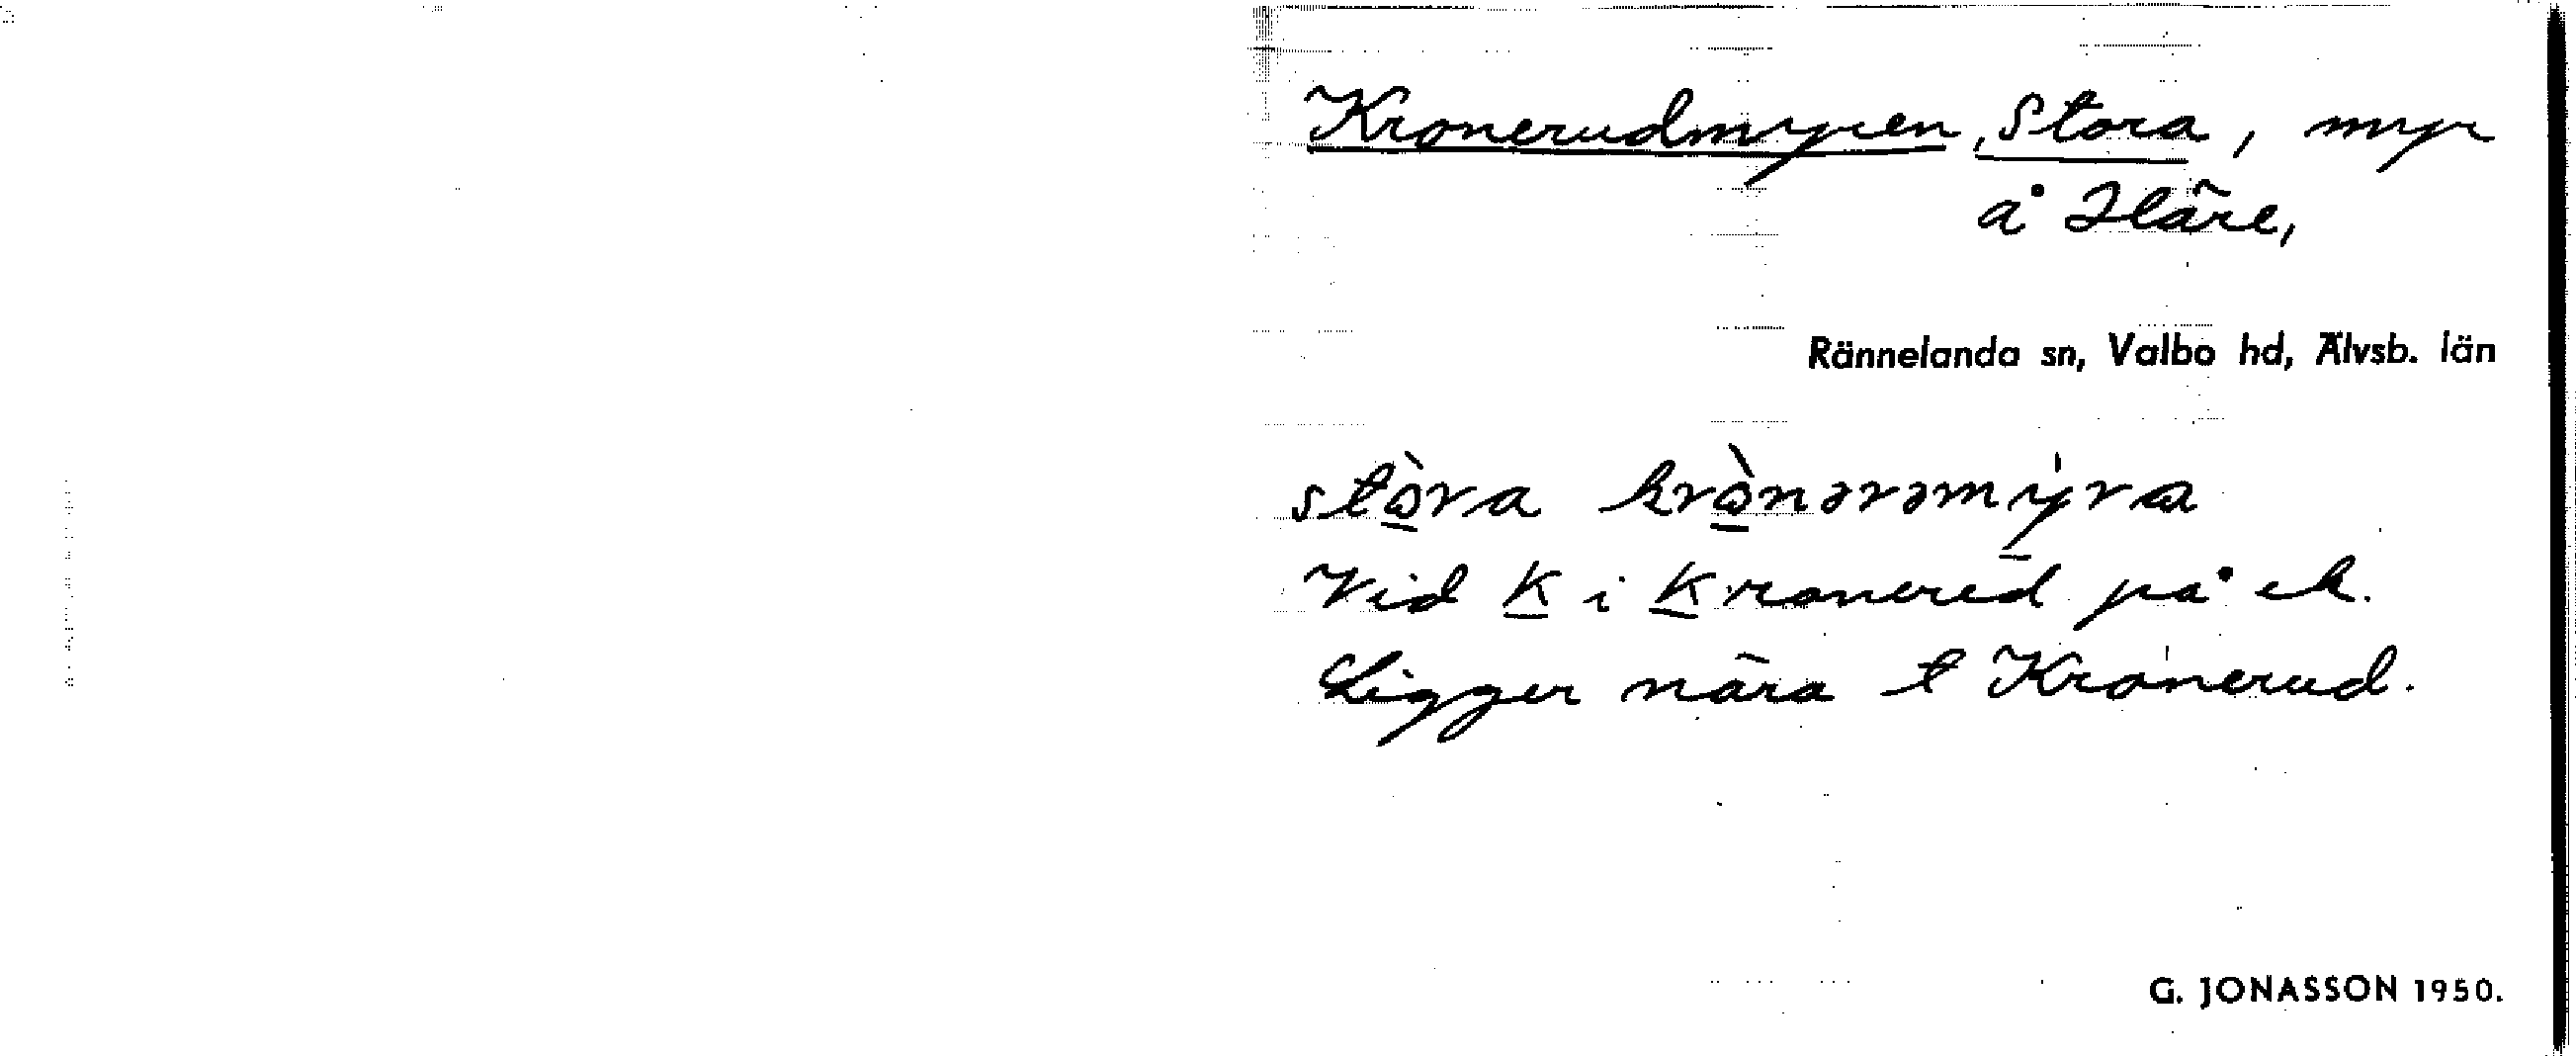 Kronerudmyren, Stora, myr
å Hläre,
Rännelanda sn, Valbo hd, Älvsb. län
stòra krònərəmy̍ra
Vid K i Kronered på ek.
Ligger nära t Kronerud.
G. JONASSON 1950.